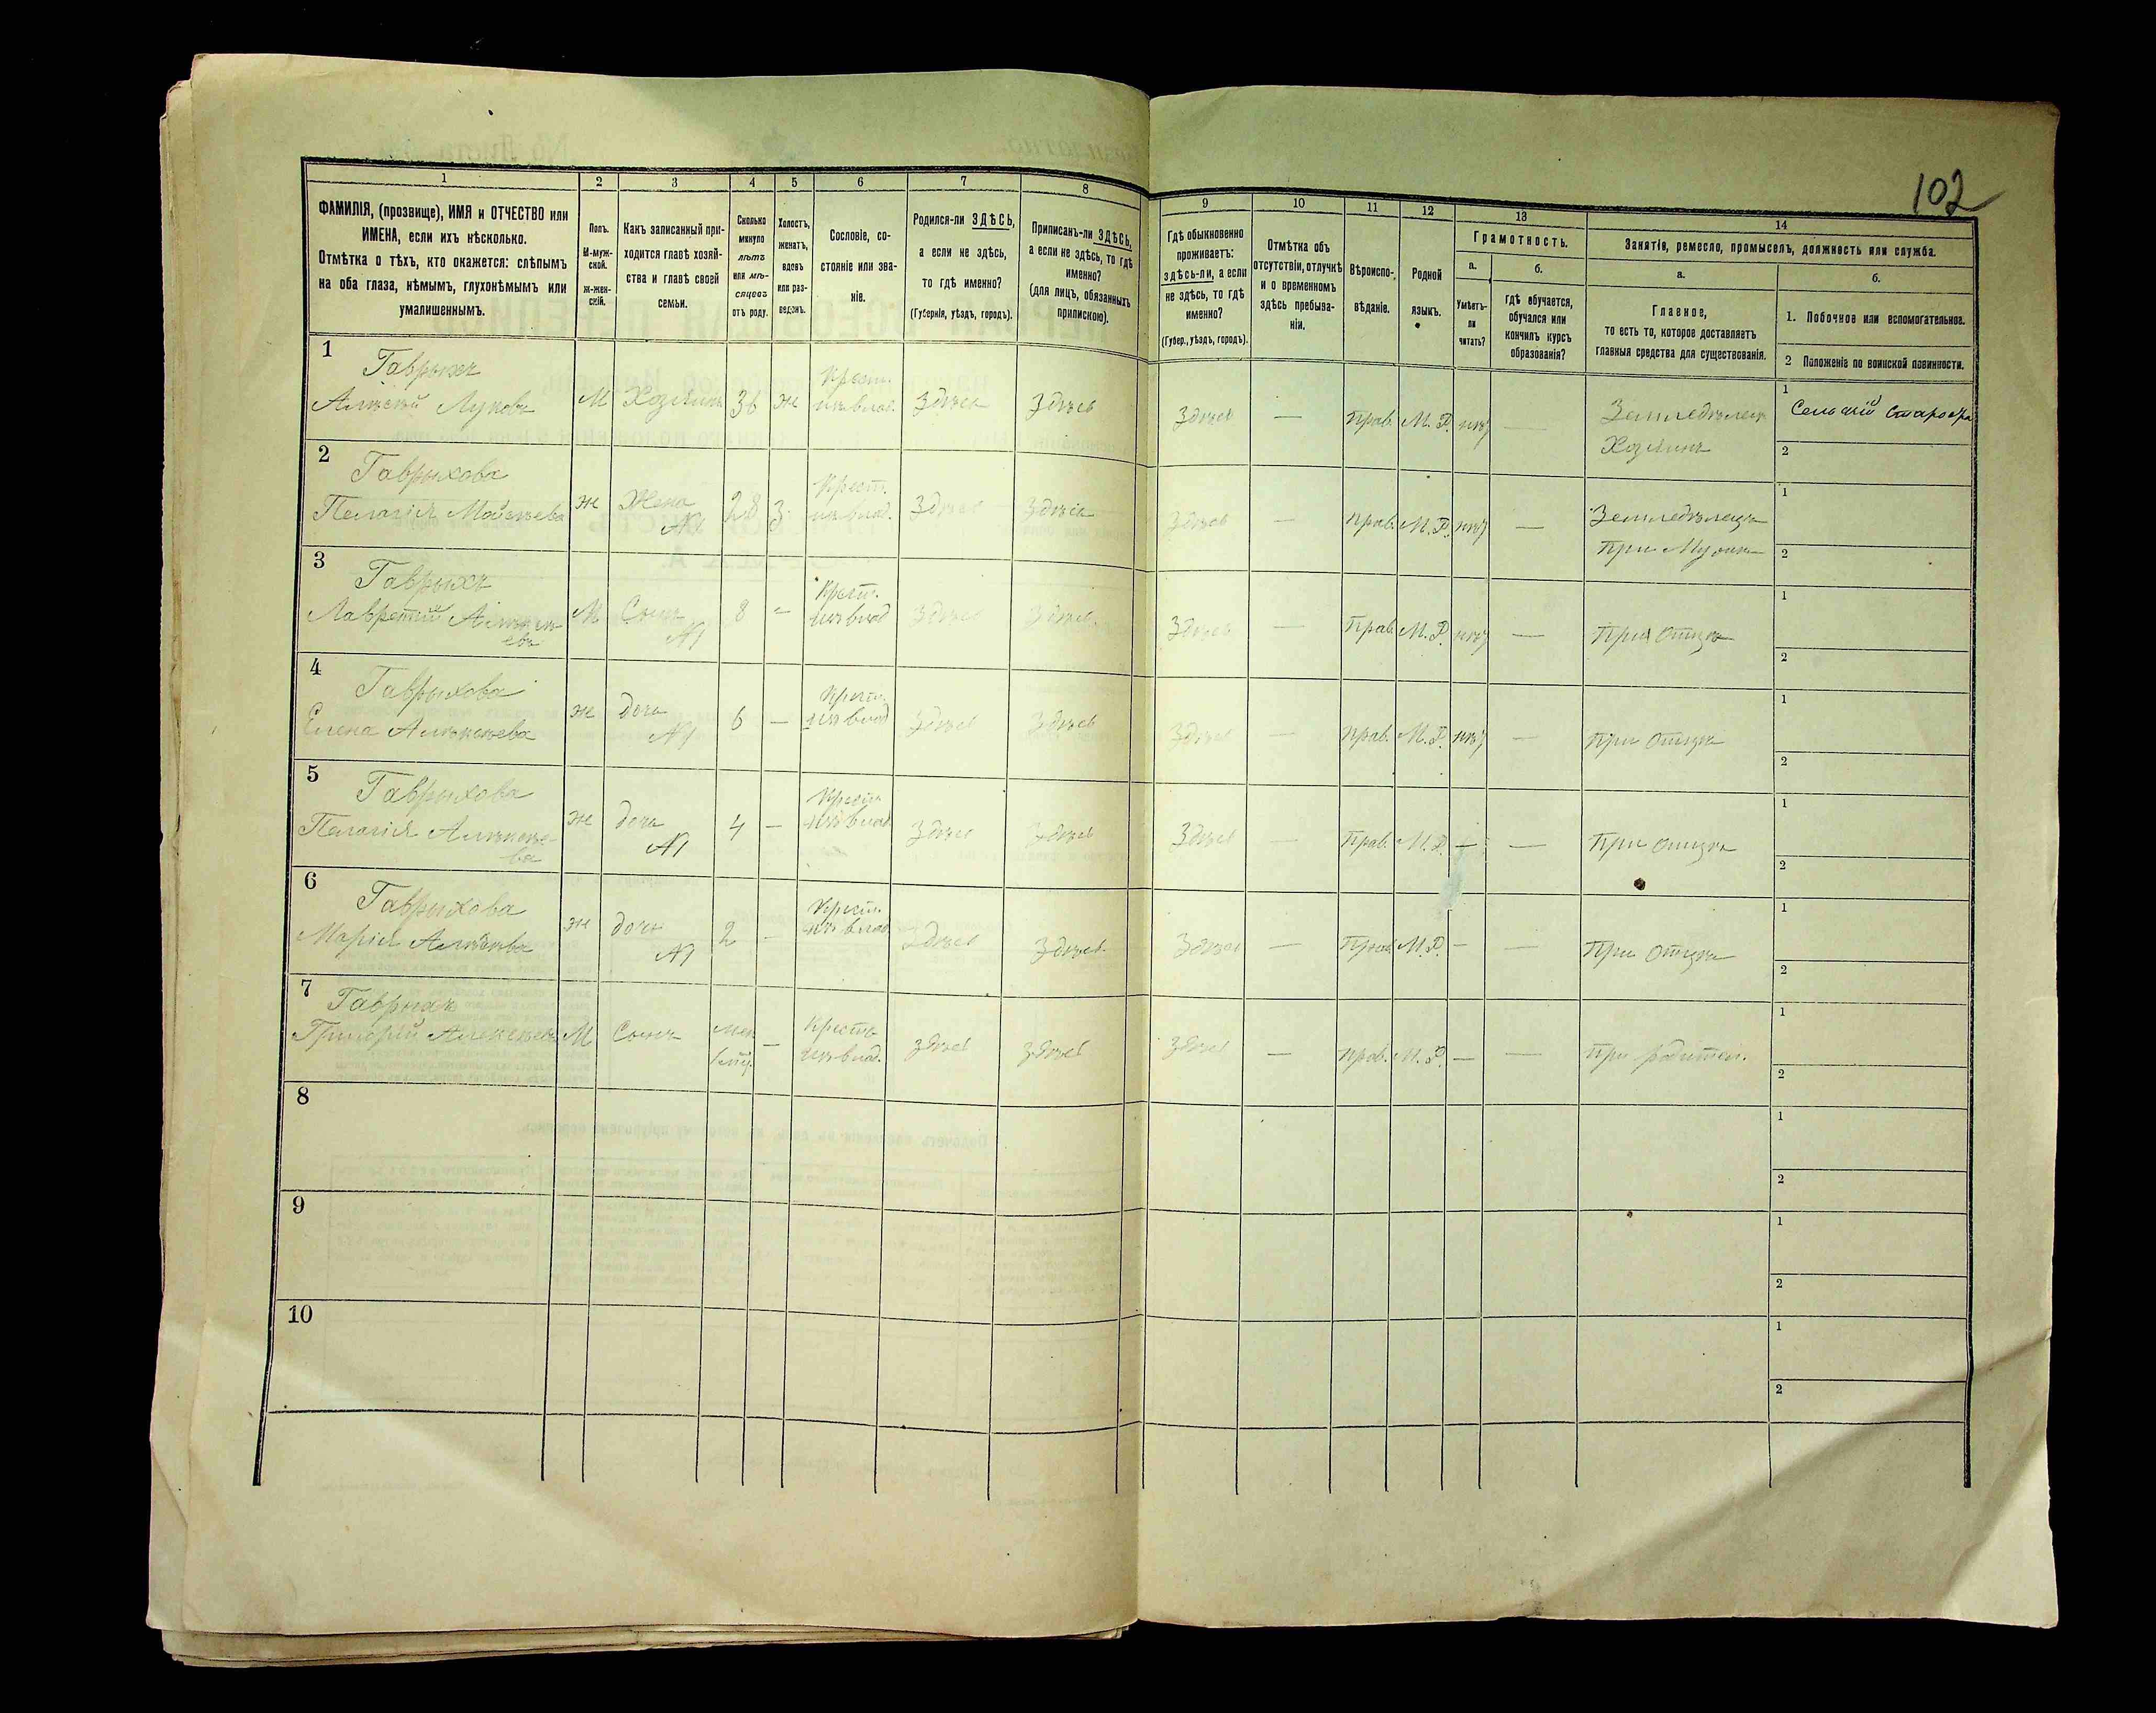 102
1
2
3
4
5
6
7
8
9
10
11
12
13
14
ФАМИЛІЯ, (прозвище), ИМЯ и ОТЧЕСТВО или
ИМЕНА, если ихъ нѣсколько.
Отмѣтка о тѣхъ, кто окажется: слѣпымъ
на оба глаза, нѣмымъ, глухонѣмымъ или
умалишеннымъ.
Полъ.
М-муж-
ской.
ж-жен-
скій.
Какъ записанный при-
ходится главѣ хозяй-
ства и главѣ своей
семьи.
Сколько
минуло
лѣтъ
или мѣ-
сяцевъ
отъ роду.
Холостъ,
женатъ,
вдовъ
или раз-
веденъ.
Сословіе, со-
стояніе или зва-
ніе.
Родился-ли ЗДѢСЬ,
а если не здѣсь,
то гдѣ именно?
(Губернія, уѣздъ, городъ).
Приписанъ-ли ЗДѢСЬ,
а если не здѣсь, то гдѣ
именно?
(для лицъ, обязанныхъ
припискою).
Гдѣ обыкновенно
проживаетъ:
здѣсь-ли, а если
не здѣсь, то гдѣ
именно?
(Губер., уѣздъ, городъ).
Отмѣтка объ
отсутствіи, отлучкѣ
и о временномъ
здѣсь пребыва-
ніи.
Вѣроиспо-
вѣданіе.
Родной
языкъ.
Грамотность.
а.
Умѣетъ-
ли
читать?
б.
гдѣ обучается,
обучался или
кончилъ курсъ
образованія?
Занятіе, ремесло, промыселъ, должность или служба.
а.
Главное,
то есть то, которое доставляетъ
главныя средства для существованія.
б.
1. Побочное или вспомогательное.
2 Положеніе по воинской повинности.
1 Гаврыхъ
Алексѣй Луковъ М Хозяинъ 36 ж Крест. изъ влад. Здѣсь Здѣсь Здѣсь — прав. М. Р. нѣт — Земледѣлецъ Хозяинъ
1 Сельскій Староста
2
2 Гаврыхова
Пелагія ж Жена №1 28 З. Крест. изъ влад. Здѣсь Здѣсь Здѣсь — прав. М. Р. нѣт — Земледѣлецъ при Мужѣ
1
2
3 Гаврыхъ
Лаврентій М Сынъ №1 8 - Крест. изъ влад Здѣсь Здѣсь Здѣсь — Прав. М. Р. нѣт — При отцѣ
1
2
4 Гаврыхова
Елена ж дочь №1 6 — Крест. изъ влад Здѣсь Здѣсь Здѣсь — прав. М. Р. нѣт — при отцѣ
1
2
5 Гаврыхова
Пелагія ж дочь №1 4 — Крест. изъ влад Здѣсь Здѣсь Здѣсь — Прав. М. Р. — — при отцѣ
1
2
6 Гаврыхова
Марія ж дочь №1 2 — Крест. изъ влад. Здѣсь Здѣсь Здѣсь — Прав. М. Р. — — при отцѣ
1
2
7 Гаврыхъ
Григорій М Сынъ — Крест. изъ влад. здѣсь здѣсь здѣсь — прав. М. Р. — — при родител.
1
2
8
1
2
9
1
2
10
1
2